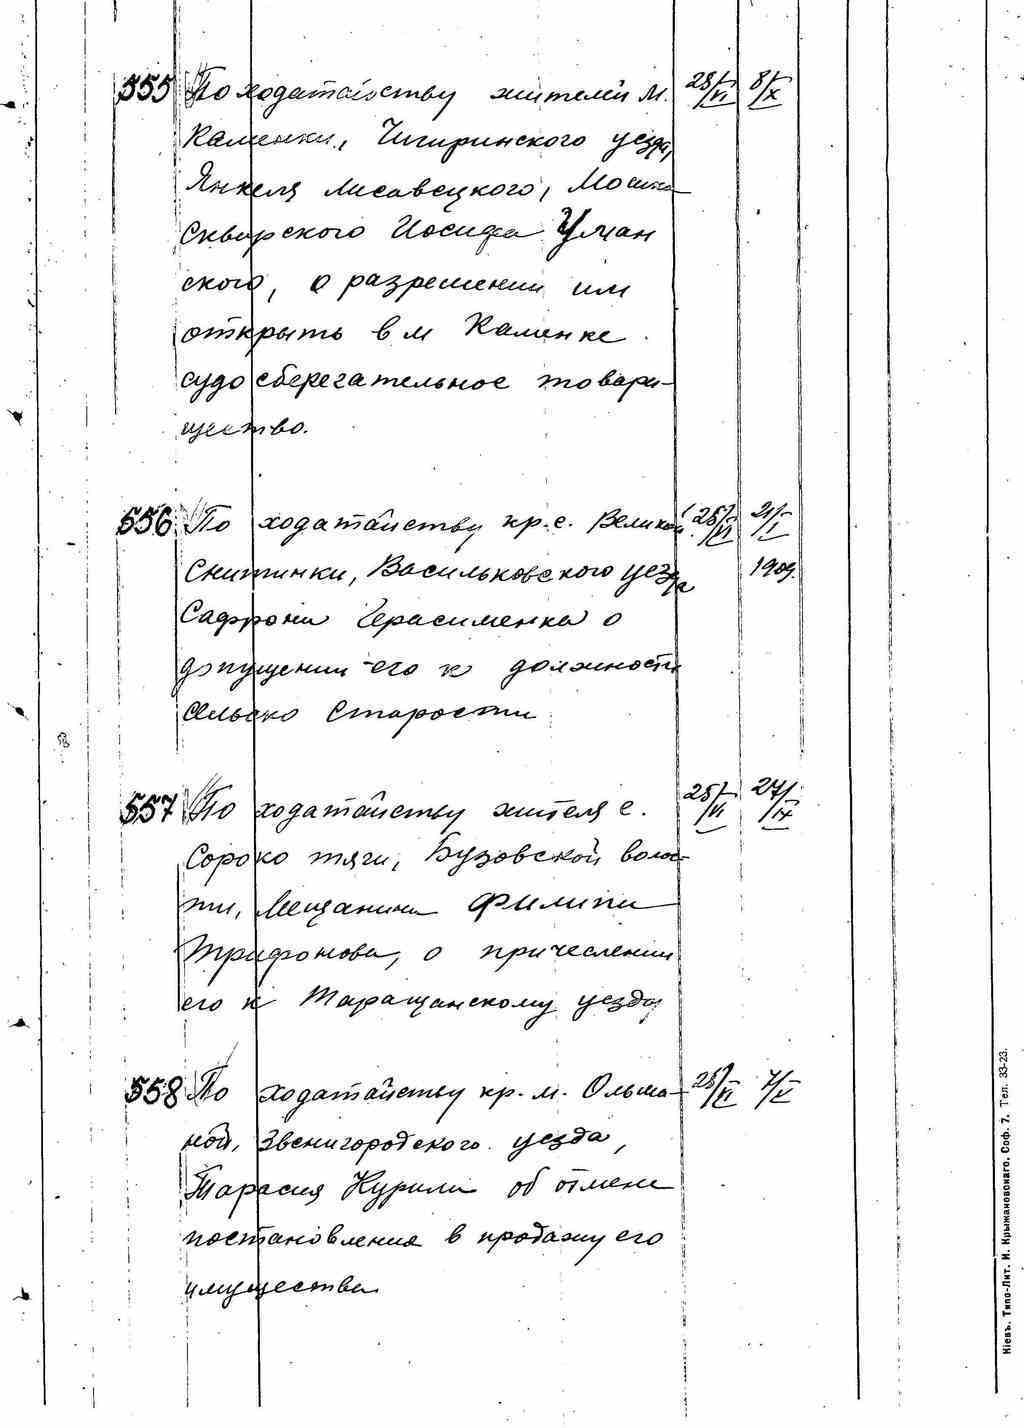 555 По ходатайству жителей м. 28/VI 8/IX
Каменки, Чигиринского уезда,
Янкеля Лисавецкого, Мошка
Сквирского Иосифа Уман
ского, о разрешении им
открыть в м Каменке
судосберегательное товари-
щество.
556 По ходатайству кр. с. Великой 25/VI 21/I
Снитинки, Васильковского уезда 1909.
Сафрона Герасименка о
допущении его к должности
сельско Старости
557 По ходатайству жителя с. 25/VI 27/IX
Сороко тяги, Бузовской волос-
ти, Мещанина Филипа
Трифонова, о причеслении
его к Таращанскому уезду
558 По ходатайству кр. м. Ольша- 25/VI 7/V
ной, Звенигородского уезда,
Тарасия Курили об отмене
постановления в продажу его
имущества
Кіевъ. Типо-Лит. И. Крыжановскаго, Соф. 7. Тел. 33-23.